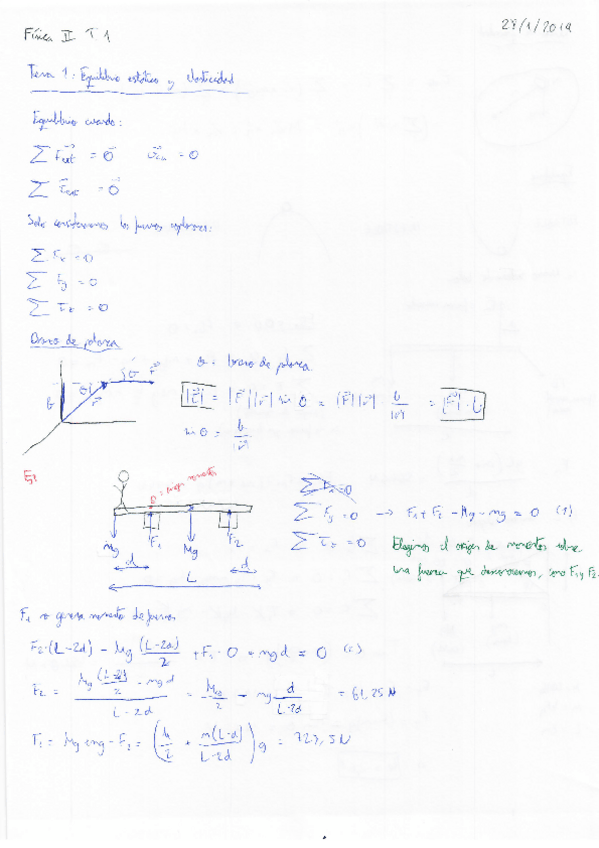 Física II T 1
29/1/2019
Tema 1: Equilibrio estático y elasticidad
Equilibrio cuando:
Σ F⃗ext = 0⃗ = 0
Σ τ⃗ext = 0⃗
Solo consideramos las fuerzas coplanares:
Σ Fx = 0
Σ Fy = 0
Σ τz = 0
Brazo de palanca
b θ r⃗ θ F⃗
b = brazo de palanca
|τ⃗| = |F⃗||r⃗| sin θ = |F⃗||r⃗| b/|r⃗| = |F⃗| · b
sin θ = b/|r⃗|
Ej:
0 = origen momentos
mg F1 Mg F2
d d
L
Σ Fx = 0
Σ Fy = 0 → F1 + F2 - Mg - mg = 0 (1)
Σ τz = 0 Elegimos el origen de momentos sobre
una fuerza que desconocemos, como F1 y F2.
F1 no genera momento de fuerzas
F2·(L-2d) - Mg (L-2d)/2 + F1 · 0 + mgd = 0 (2)
F2 = (Mg (L-2d)/2 - mgd)/(L-2d) = Mg/2 - mg d/(L-2d) = 61,25 N
F1 = Mg + mg - F2 = (M/2 + m(L-d)/(L-2d)) g = 723,5 N